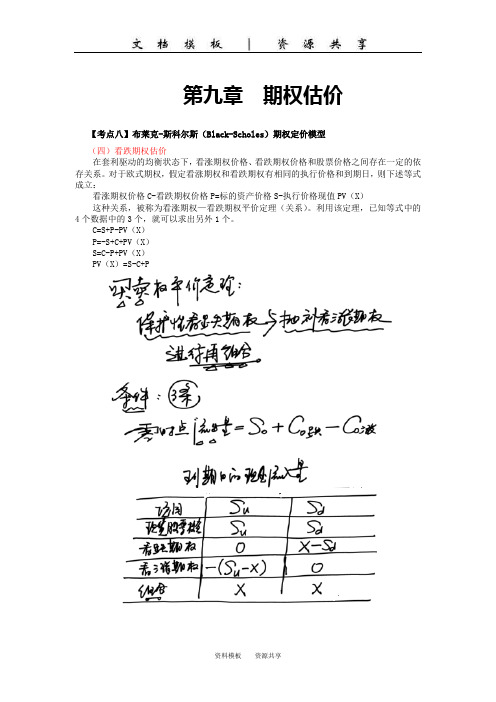 文 档 模 板 | 资 源 共 享
第九章 期权估价
【考点八】布莱克-斯科尔斯(Black-Scholes)期权定价模型
(四)看跌期权估价
在套利驱动的均衡状态下,看涨期权价格、看跌期权价格和股票价格之间存在一定的依
存关系。对于欧式期权,假定看涨期权和看跌期权有相同的执行价格和到期日,则下述等式
成立:
看涨期权价格C-看跌期权价格P=标的资产价格S-执行价格现值PV(X)
这种关系,被称为看涨期权—看跌期权平价定理(关系)。利用该定理,已知等式中的
4个数据中的3个,就可以求出另外1个。
C=S+P-PV(X)
P=-S+C+PV(X)
S=C-P+PV(X)
PV(X)=S-C+P
权平价定理:
保护性看跌期权与抛补看涨期权
进行再组合。
条件:
零时点流量=S0+C0跌-C0涨
到期日的现金流量
Su Sd
Su Sd
看跌期权 0 X-Sd
看涨期权 -(Su-X) 0
组合 X X
资料模板 资源共享